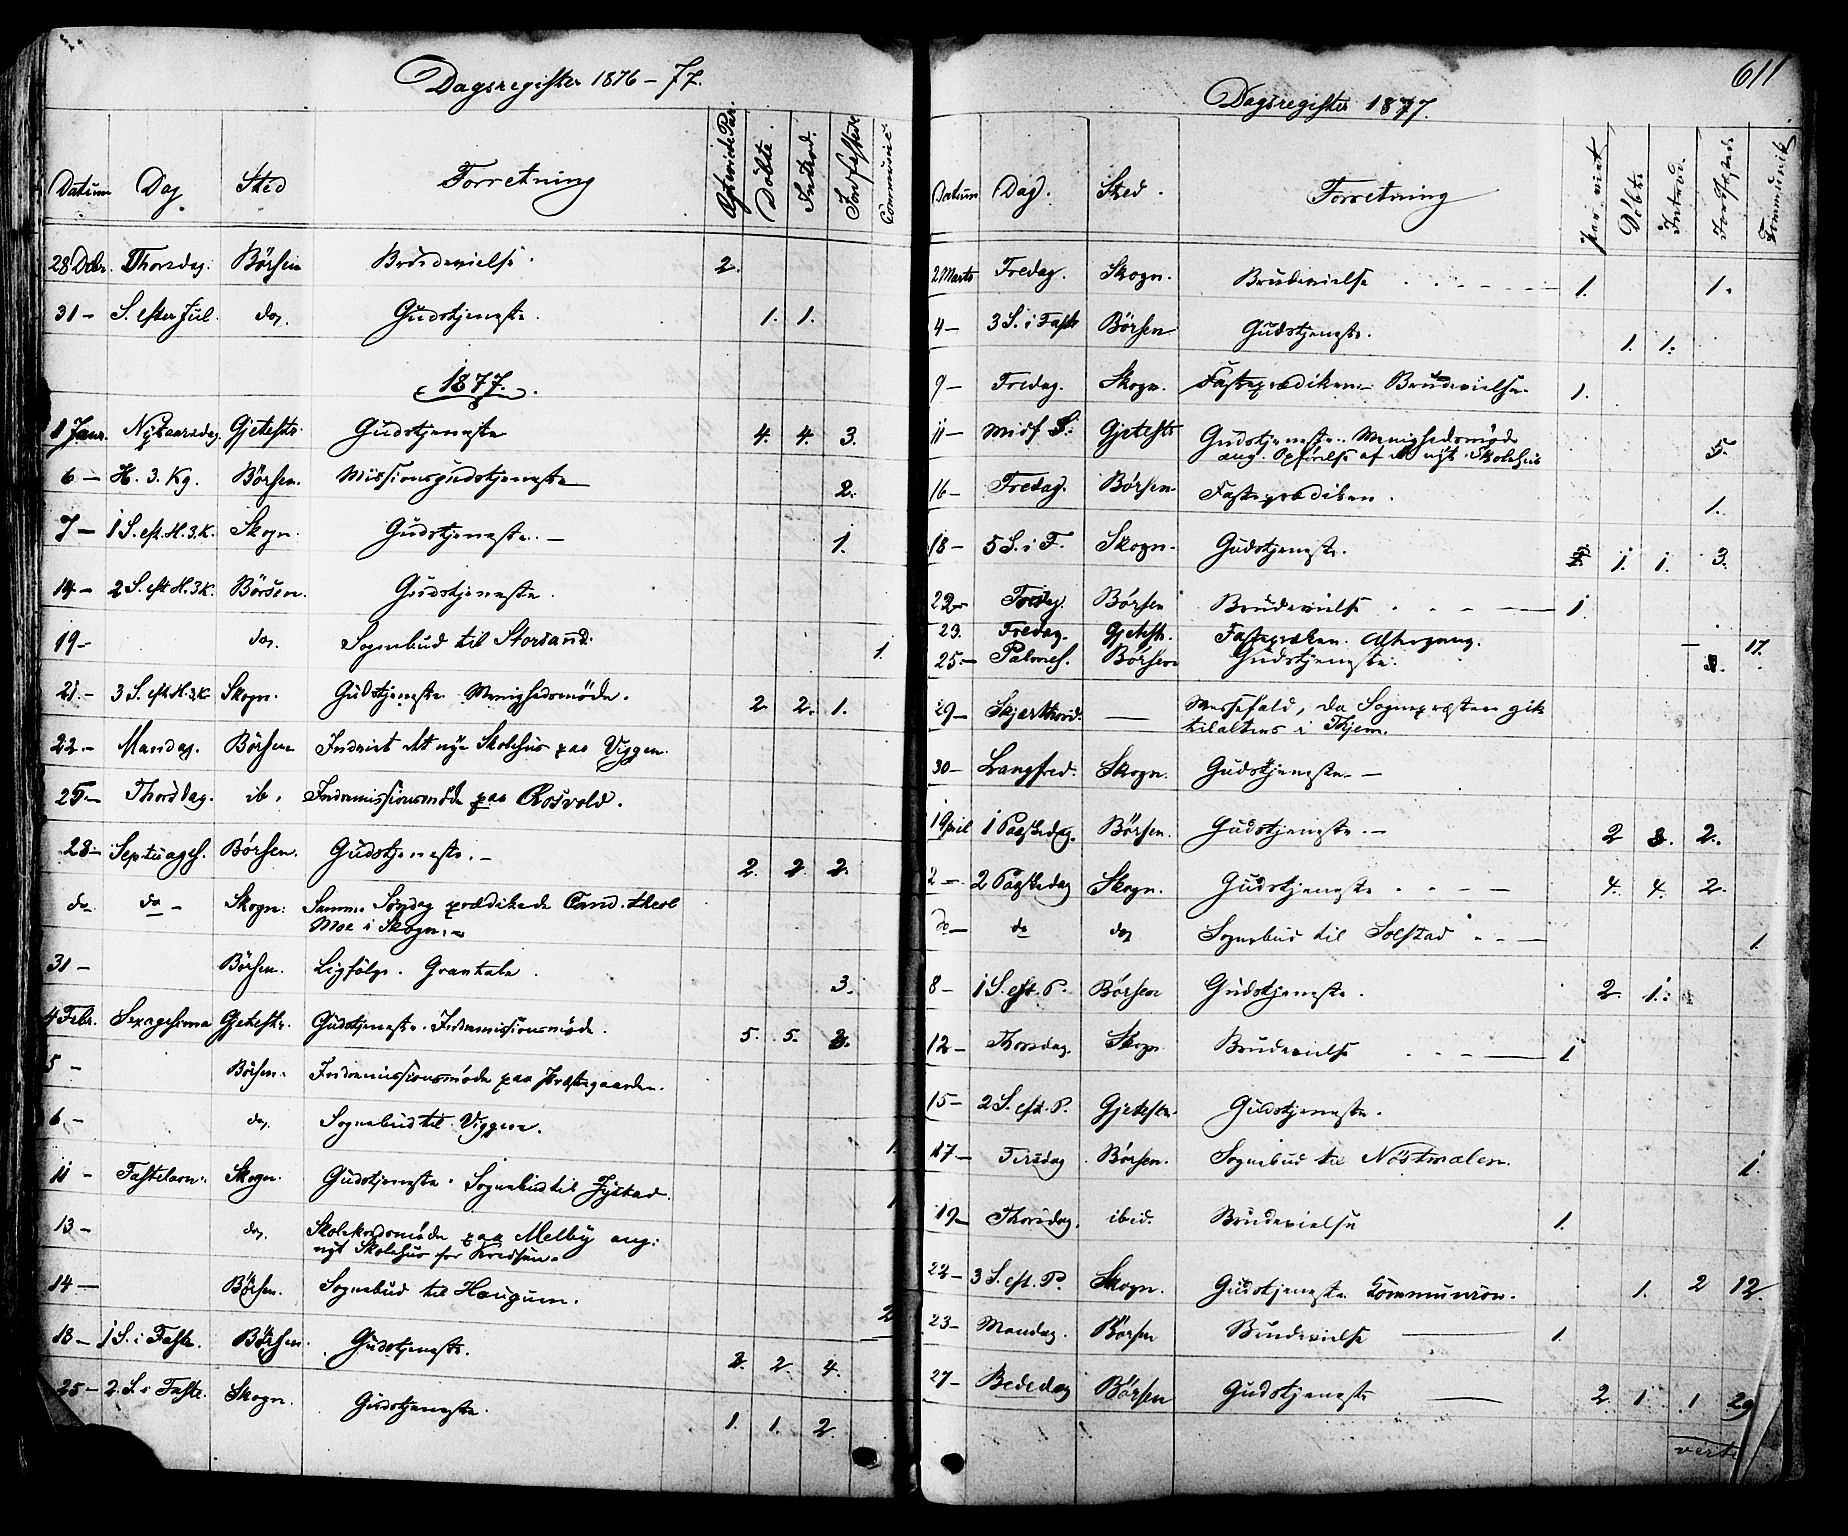 Dagsregister 1876-77.
Datum Dag Sted Forretning Døbte. Introd. Jordfæstede Communic
28 Dcbr. Thorsdag. Børsen Brudevielse. 2.
31 - S. efter Jul do, Gudstjeneste. 1. 1.
1877.
1 Janr. Nytaarsdag. Gjetestr. Gudstjeneste 4. 4. 3.
6 - H. 3. Kg. Børsen. Missionsgudstjeneste 2.
7 - 1 S. eft. H. 3. K. Skogn. Gudstjeneste. - 1.
14 - 2 S. eft H. 3 K. Børsen. Gudstjeneste.
19 - do, Sognebud til Storsand. 1.
21. - 3 S. eft H. 3. K Skogn. Gudstjeneste Menighedsmøde. 2. 2. 1.
22 - Mandag. Børsen Indviet det nye Skolehus paa Viggen.
25 - Thorsdag. ib. Indremissionsmøde paa Rosvold.
28 - Septuages. Børsen. Gudstjeneste. - 2. 2. 2.
do do - Skogn: Samme Søndag prædikede Cand. theol
Moe i Skogn. -
31 - Børsen. Ligfølge. Grautale. 3.
4 Febr. Sexagesima Gjetestr. Gudstjeneste. Indremissionsmøde. 5. 5. 2.
5 - Børsen. Indremissionsmøde paa Præstegaarden.
6 - do, Sognebud til Viggen. 1.
11 - Fastelavn. Skogn. Gudstjeneste. Sognebud til 1
13 - do, Skolekredsmøde paa Melby ang:
nyt Skolehus for Kredsen.
14 - Børsen. Sognebud til Haugum. 2
18 - 1 S. i Faste. Børsen. Gudstjeneste. 2. 2. 4.
25 - 2. S. i Faste. Skogn. Gudstjeneste. 1. 1. 2.
611
Dagsregister 1877.
Datum Dag. Sted. Forretning Par viet Døbte Introd. Jordfæstede Kommunik
2 Marts Fredag. Skogn. Brudevielse 1. 1.
4 - 3 S. i Faste Børsen Gudstjeneste. 1. 1.
9 - Fredag. Skogn. Fasteprædiken - Brudevielse. 1.
11 - Midf S. Gjetestr Gudstjeneste. Menighedsmøde
ang. Opførelse af et nyt Skolehus 5.
16 - Fredag. Børsen Fasteprædiken. 1.
18 - 5 S. i F. Skogn. Gudstjeneste. 1. 1. 3.
22 - Børsen Brudevielse 1
23. Fredag. Gjetestr. Altergang. 17.
25. - Palmes. Børsen Gudstjeneste.
29 - Skjærthorsd. - Messefald, da Sognepræsten gik
tilalters i Thjem.
30 - Langfred. Skogn. Gudstjeneste. -
1 April 1 Paaskedag. Børsen. Gudstjeneste. - 2 2.
2 - 2 Paaskedag Skogn. Gudstjeneste 4. 4. 2.
do - do do, Sognebud til Solstad 1.
8 - 1 S. eft. P. Børsen Gudstjeneste. 2. 1.
12 - Thorsdag. Skogn Brudevielse 1
15 - 2 S. eft. P. Gjetestr. Gudstjeneste.
17 - Tirsdag Børsen. Sognebud til 1.
19 - Thorsdag. ibid. Brudevielse 1.
22 - 3 S. eft. P. Skogn. Gudstjeneste Kommunion. 1. 2 12.
23 - Mandag. Børsen Brudevielse 1.
27 - Bededag Børsen Gudstjeneste 2. 1. 1 29
verte